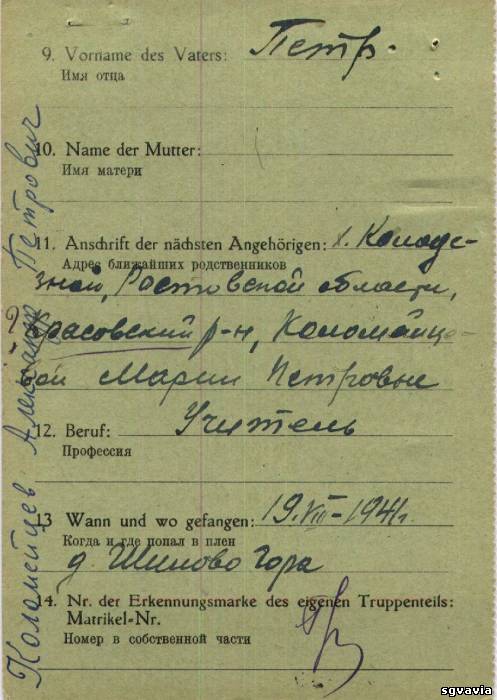 9. Vorname des Vaters: Петр
Имя отца
10. Name der Mutter:
Имя матери
11. Anschrift der nächsten Angehörigen: х. Колоде-
Адрес ближайших родственников
зной, Ростовской области,
р-н, Коломийце-
вой Марии Петровне
12. Beruf: Учитель
Профессия
13 Wann und wo gefangen: 19.VIII-1941г.
Когда и где попал в плен
д. Шилово Гора
14. Nr. der Erkennungsmarke des eigenen Truppenteils:
Matrikel-Nr.
Номер в собственной части
Коломейцев Александр Петрович
sgvavia